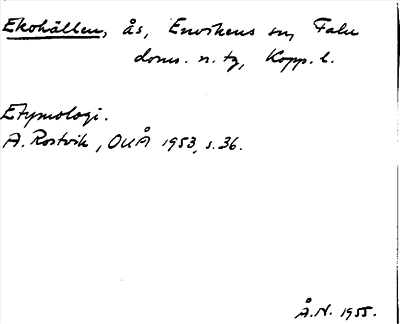 Ekohällen, ås, Envikens sn, Falu
doms. n. tg, Kopp. l.
Etymologi.
A. Rostvik, OUÅ 1953, s. 36.
Å.N. 1955.